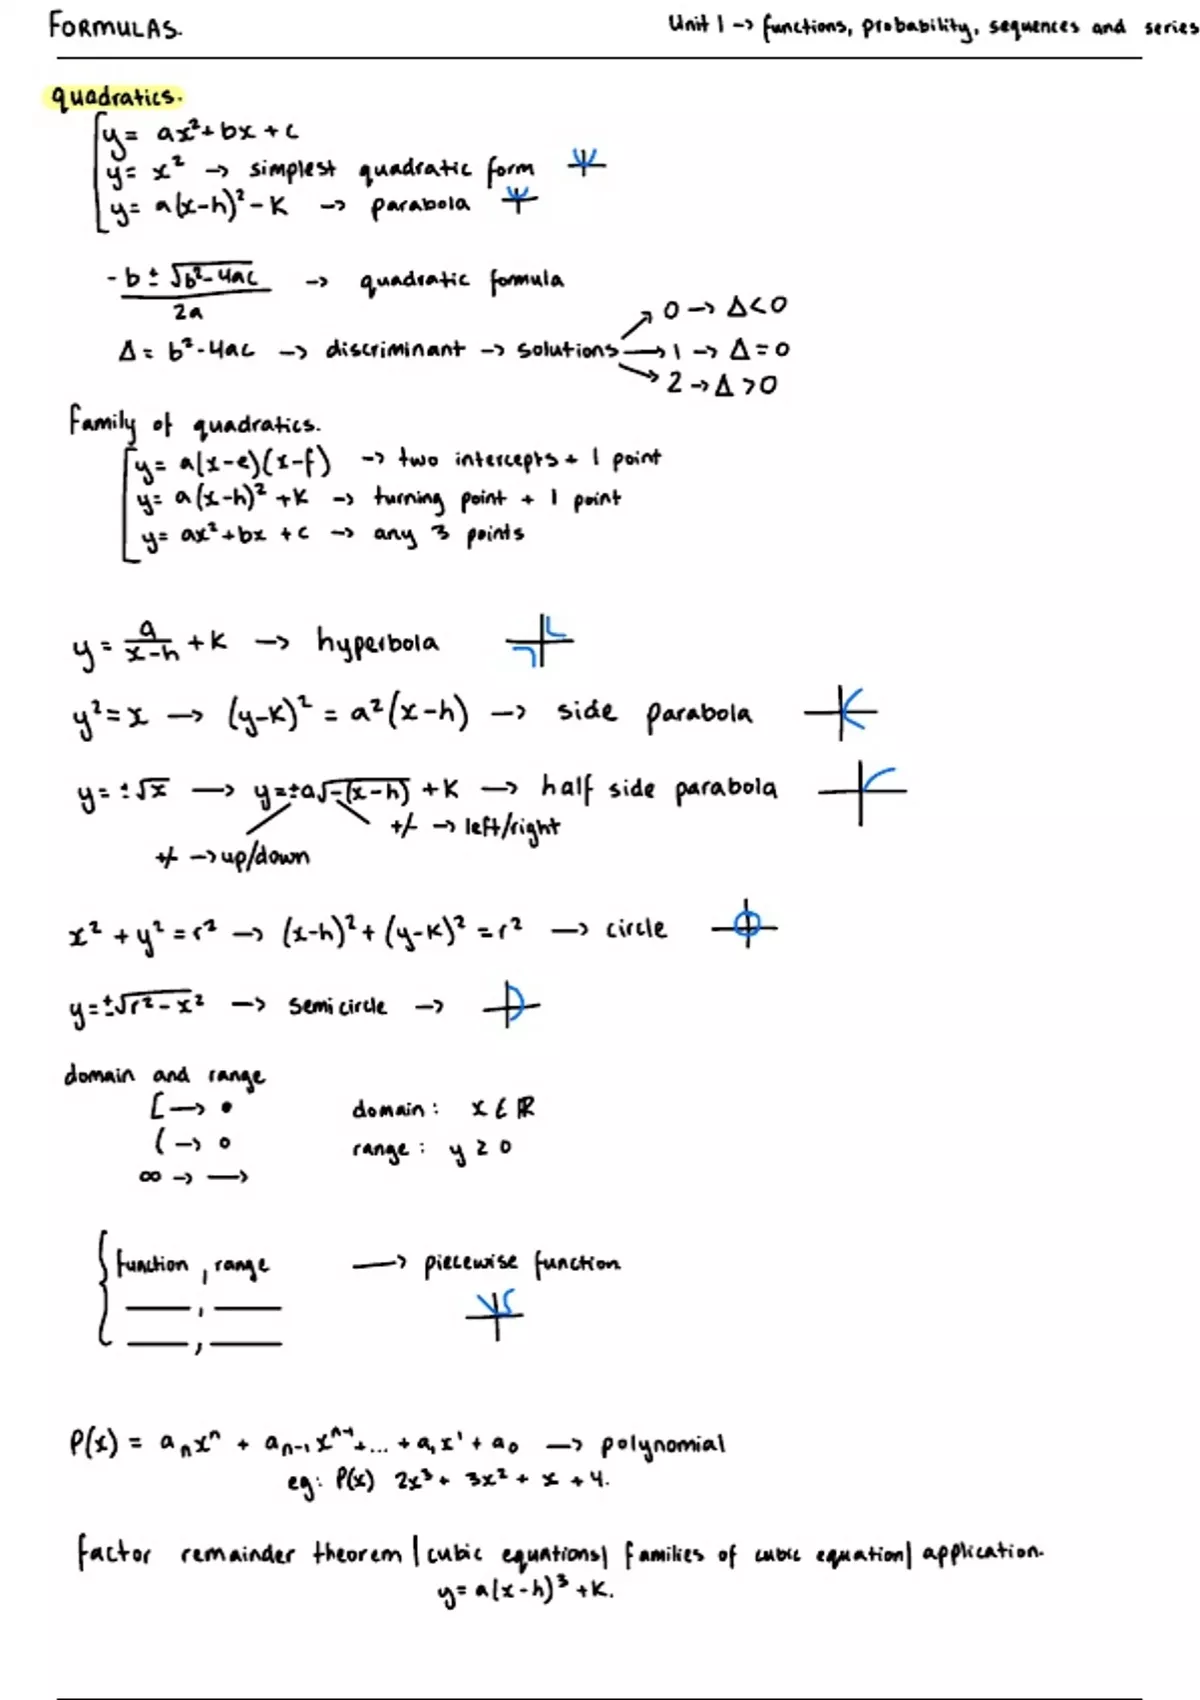 FORMULAS.
Unit 1 → functions, probability, sequences and series
quadratics.
y = ax² + bx + c
y = x² → simplest quadratic form
y = a(x-h)² - K → parabola
-b ± √b²-4ac / 2a → quadratic formula
Δ = b²-4ac → discriminant → solutions
0 → Δ<0
1 → Δ=0
2 → Δ>0
Family of quadratics.
y = a(x-e)(x-f) → two intercepts + 1 point
y = a(x-h)² + K → turning point + 1 point
y = ax² + bx + c → any 3 points
y = a/x-h + K → hyperbola
y² = x → (y-K)² = a²(x-h) → side parabola
y = ±√x → y = ±a√-(x-h) + K → half side parabola
+/- → left/right
+/- → up/down
x² + y² = r² → (x-h)² + (y-K)² = r² → circle
y = ±√r²-x² → semi circle →
domain and range
[ → •
domain: x ∈ ℝ
( → ○
range: y ≥ 0
∞ → →
{ function, range → piecewise function
P(x) = aₙxⁿ + aₙ₋₁xⁿ⁻¹ + ... + a₁x¹ + a₀ → polynomial
eg: P(x) 2x³ + 3x² + x + 4.
factor remainder theorem | cubic equations | families of cubic equation | application.
y = a(x-h)³ + K.